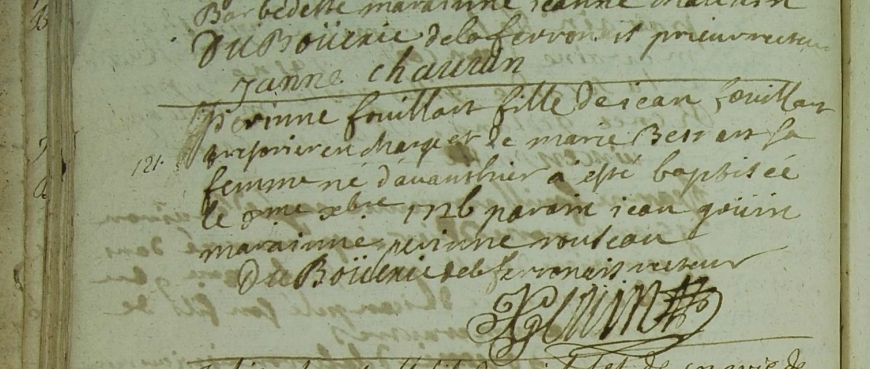 Barbedette marainne jeanne chauvin
DuBoüexic de la ferronnais prieur recteur
Janne chauvin
121. perinne fouillart fille de jean fouillart
tresorier en charge et de marie Bessart sa
femme né d'avanthier a esté baptisée
le 8me xbre 1726 parain jean guivin
marainne perinne rouleau
DuBoüexic de la ferronnais recteur
JGuivin